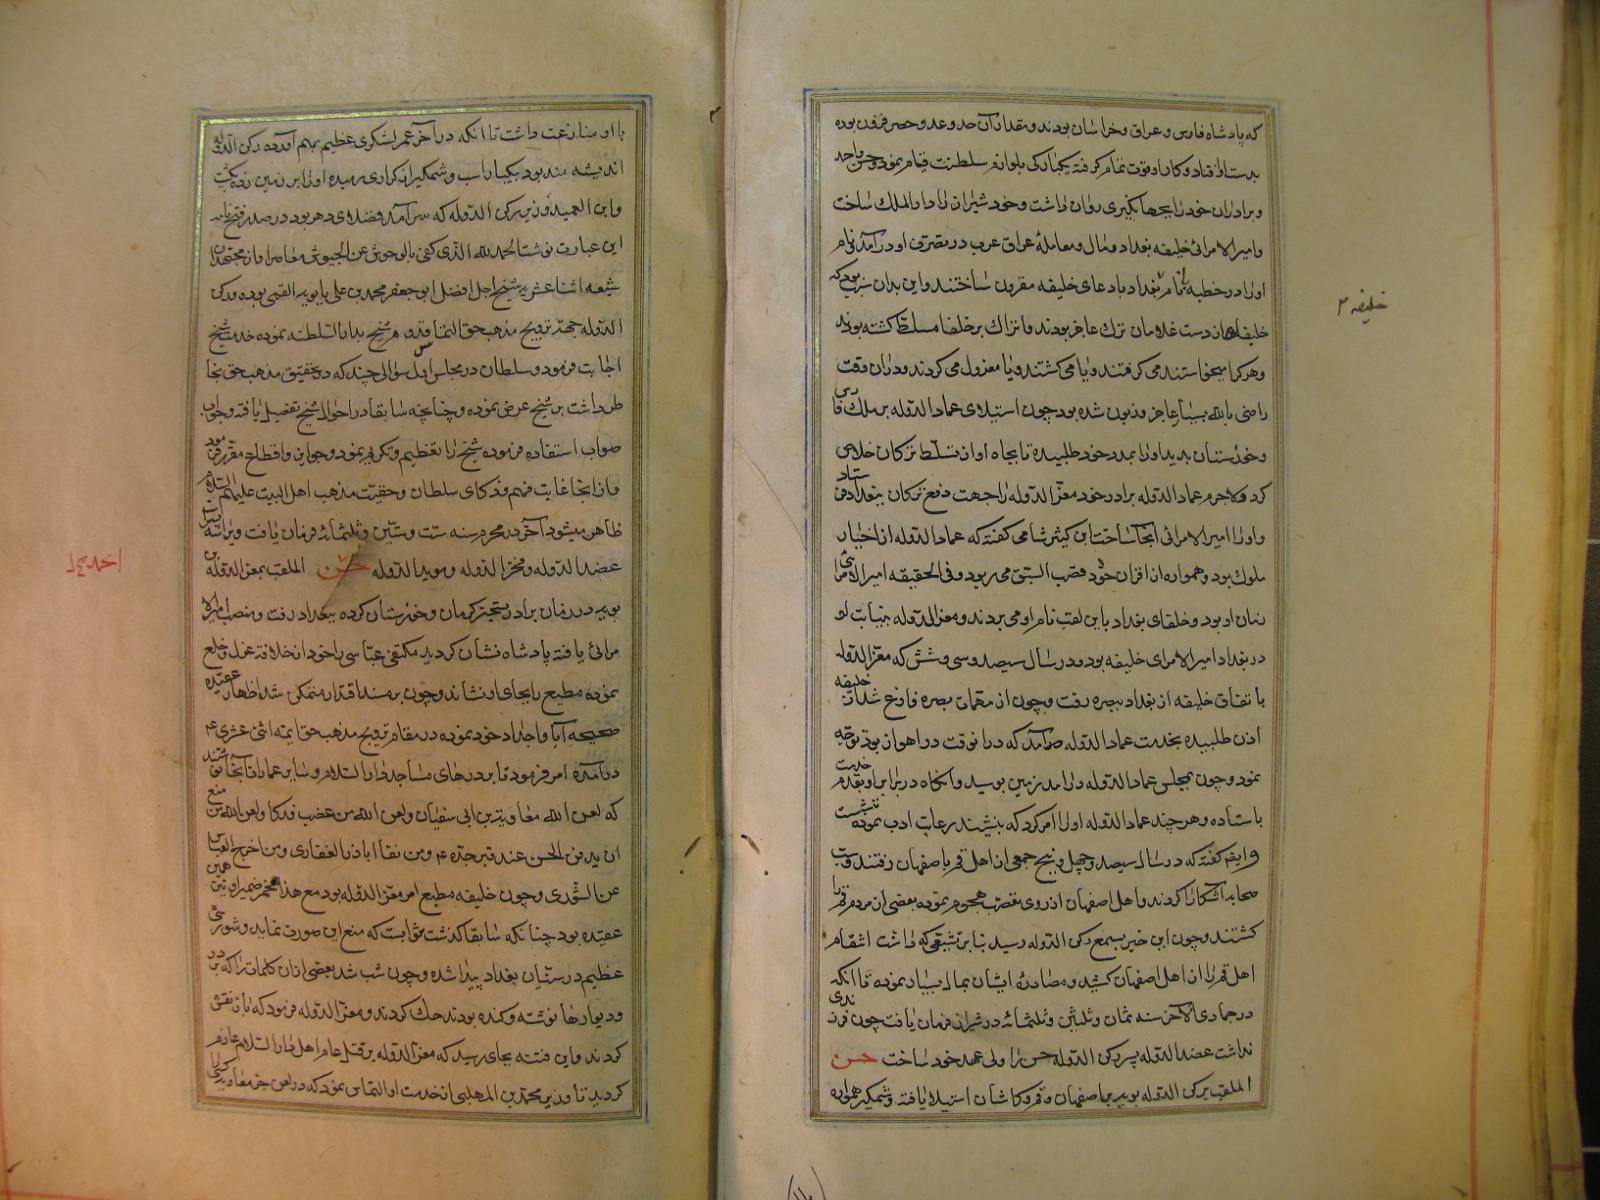 که پادشاه فارس و عراق و خراسان بودند و مقدار آن حد و عد و حصر فزون بوده
بدست او افتاد و کار او قوت تمام گرفته یکبارگی بلوازم سلطنت قیام نمود و حسن و احمد
و برادران خود را بجهانگیری روان داشت و خود شیراز را دار الملک ساخت
و امیر الامرائی خلیفه بغداد و مال و معاملهٔ عراق عرب در تصرف او درآمد و نام
او را در خطبه تمام بغداد با دعای خلیفه مقرون ساختند و این بدان سبب بود که
خلیفه از دست غلامان ترک عاجز بودند و اتراک بر خلفا مسلط کشته بودند
و هر کرا میخواستند می کرفتند و یا می کشتند و یا معزول می کردند و در آن وقت
راضی بالله بسیار عاجز و زبون شده بود چون استیلای عماد الدوله بر ملک فارس
و خوزستان بدید او را بمدد خود طلبیده تا بجاه او از تسلط ترکان خلاص
کرد و لاجرم عماد الدوله برادر خود معز الدوله را جهت دفع ترکان ببغداد فرستاد
و او را امیر الامرائی آنجا ساخت ابن کثیر شامی کفته که عماد الدوله از اخیار
ملوک بود و همواره از اقران خود قصب السبق می ربود و فی الحقیقه امیر الامرائی
زمان او بود و خلفای بغداد باین لقب نام او می بردند و معز الدوله بنیابت او
در بغداد امیر الامرای خلیفه بود و در سال سیصد و سی و شش که معز الدوله
باتفاق خلیفه از بغداد ببصره رفت و چون از مهمات بصره فارغ شد از خلیفه
اذن طلبیده بخدمت عماد الدوله که در آنوقت در اهواز بود توجه
نمود و چون بمجلس عماد الدوله درآمد زمین بوسید و آنکاه در برابر او بقدم خدمت
باستاده و هر چند عماد الدوله او را امر کرد که بنشیند رعایت ادب نموده ننشست
و ایضا کفته که در سال سیصد و چهل و پنج جمعی از اهل قم باصفهان رفتند و سب
صحابه آشکارا کردند و اهل اصفهان از روی تعصب هجوم نموده بعضی از مردم قم را
کشتند و چون این خبر بسمع رکن الدوله رسید بنا بر تشیعی که داشت انتقام
اهل قم را از اهل اصفهان کشید و مصادرهٔ ایشان بمال بسیار نموده تا آنکه
در جمادی الآخر سنه ثمان و ثلثین و ثلثمائه در شیراز فرمان یافت چون فرزندی
نداشت عضد الدوله پسر رکن الدوله حسن را ولی عهد خود ساخت حسن
الملقب برکن الدوله بویه بر اصفهان و قم و کاشان استیلا یافته و شمکیر همواره
خلیفه ۲
با او منازعت داشت تا آنکه در آخر عمر لشکری عظیم بهم آورده رکن الدوله
اندیشه مند بود یکبار اسب وشمکیر از کرازی رمیده او را بر زمین زده بکشت
و ابن العمید وزیر رکن الدوله که سرآمد فضلای دهر بود در صدر فتح نامه
این عبارت نوشت الحمد لله الذی کفی بالوحوش عن الجیوش معاصر او از مجتهدان
شیعه اثنا عشریه شیخ اجل افضل ابو جعفر محمد بن علی بابویه القمی بوده و رکن
الدوله جهة ترویج مذهب حق التماس قدوم شیخ بدار السلطنه نموده خدمت شیخ
اجابت فرمود و سلطان در مجلس اول سؤالی چند که در تحقیق مذهب حق بخاطر
داشت بر شیخ عرض نموده و چنانچه سابقا در احوال شیخ تفصیل یافته و جواب
صواب استفاده فرموده شیخ را تعظیم و تکریم نمود و جوایز و اقطاع مقرر فرمود
و از اینجا غایت فهم و ذکای سلطان و حقیت مذهب اهل البیت علیهم السلام
ظاهر میشود آخر در محرم سنه ست و ستین و ثلثمائه فرمان یافت و پسرانش
عضد الدوله و فخر الدوله و موید الدوله حسن الملقب بمعز الدوله بن
بویه در زمان برادر تسخیر کرمان و خوزستان کرده ببغداد رفت و منصب امیر الا
مرائی یافته پادشاه نشان کردید مکتفی عباسی را خود از خلافت عزل و خلع
نموده مطیع را بجای او نشاند و چون بر مسند اقتدار متمکن شد اظهار عقیده
صحیحه آبا و اجداد خود نموده در مقام ترویج مذهب حق ایمه اثنی عشری ع
درآمده امر فرمود تا بر درهای مساجد دار السلام و سایر عمارات آنجا نوشتند
که لعن الله معاویة بن ابی سفیان و لعن الله من غضب فدکا و لعن الله من منع
ان یدفن الحسن عند قبر جده ع و من نفا اباذر الغفاری و من اخرج العباس
عن الشوری و چون خلیفه مطیع امر معز الدوله بود مع هذا در ضمیر او نیز همین
عقیده بود چنانکه سابقا کذشت نتوانست که منع این صورت نماید و شورشی
عظیم در سنیان بغداد پیدا شده و چون شب شد بعضی از آن کلمات را که بر در
و دیوارها نوشته و کنده بودند حک کردند و معز الدوله فرمود که باز نقش
کردند و این فتنه بجای رسید که معز الدوله بر قتل عام اهل دار السلام عازم
کردید تا وزیر محمد بن المهلبی از خدمت او التماس نمود که در لعن جز معاویه دیگری را
احمد